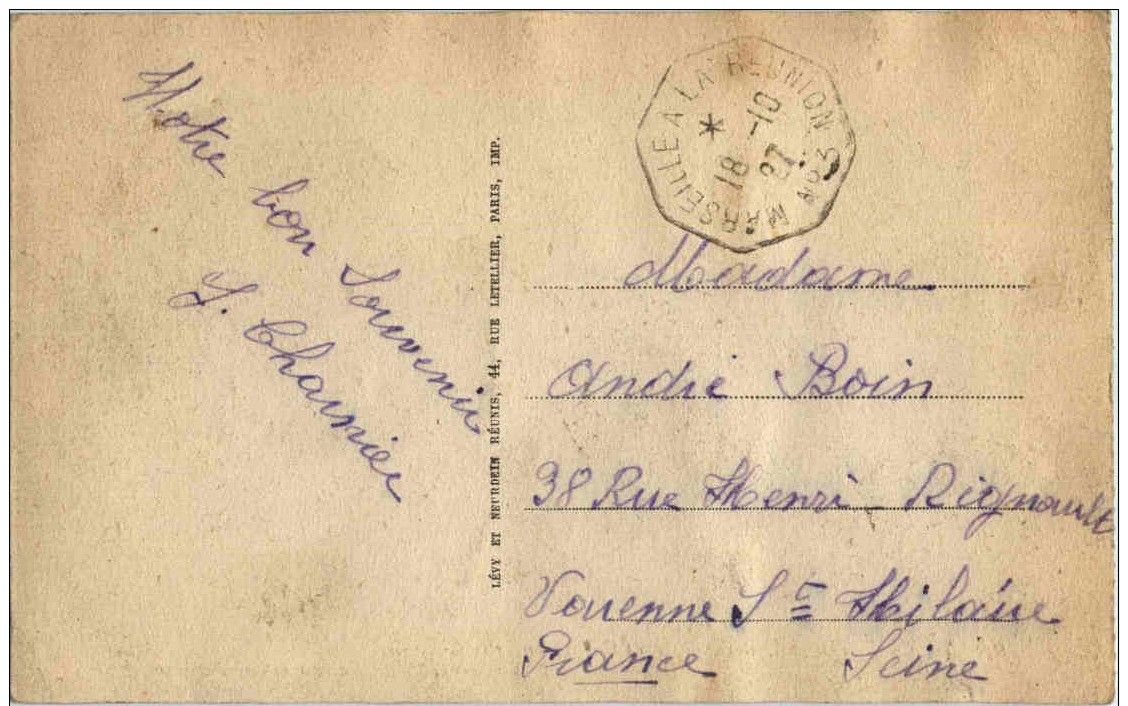 Notre
bon Souvenir
J. Charnier
LÉVY ET NEURDEIN RÉUNIS, 44, RUE LETELLIER, PARIS, IMP.
MARSEILLE A LA RÉUNION Nº 3
*
18 -10
27
Madame
André Boin
38 Rue Henri Rignault
Varenne St Hilaire
France Seine